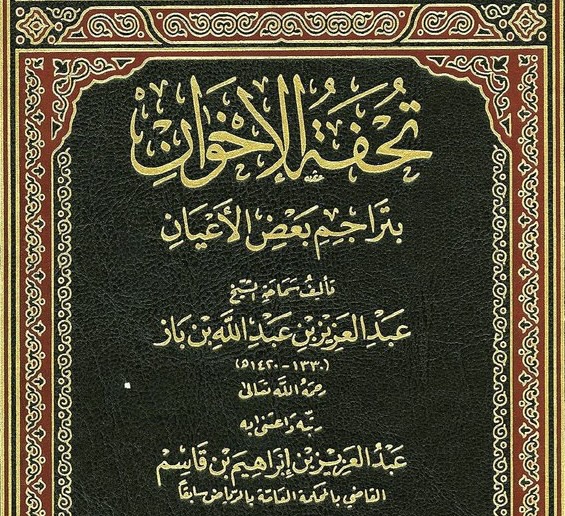 تُحْفَةُ الإِخْوَانِ
بِتَرَاجِمِ بَعْضِ الأَعْيَانِ
تأليف سماحة الشيخ
عَبْدِ العَزِيْزِ بْنِ عَبْدِ اللَّهِ بْنِ بَاز
(١٣٣٠-١٤٢٠ه)
رحمه الله تعالى
رتبه واعتنى به
عَبْدُ العَزِيْزِ بْنِ إِبْرَاهِيْمَ بْنِ قَاسِم
القاضي بالمحكمة العامة بالرياض سابقاً